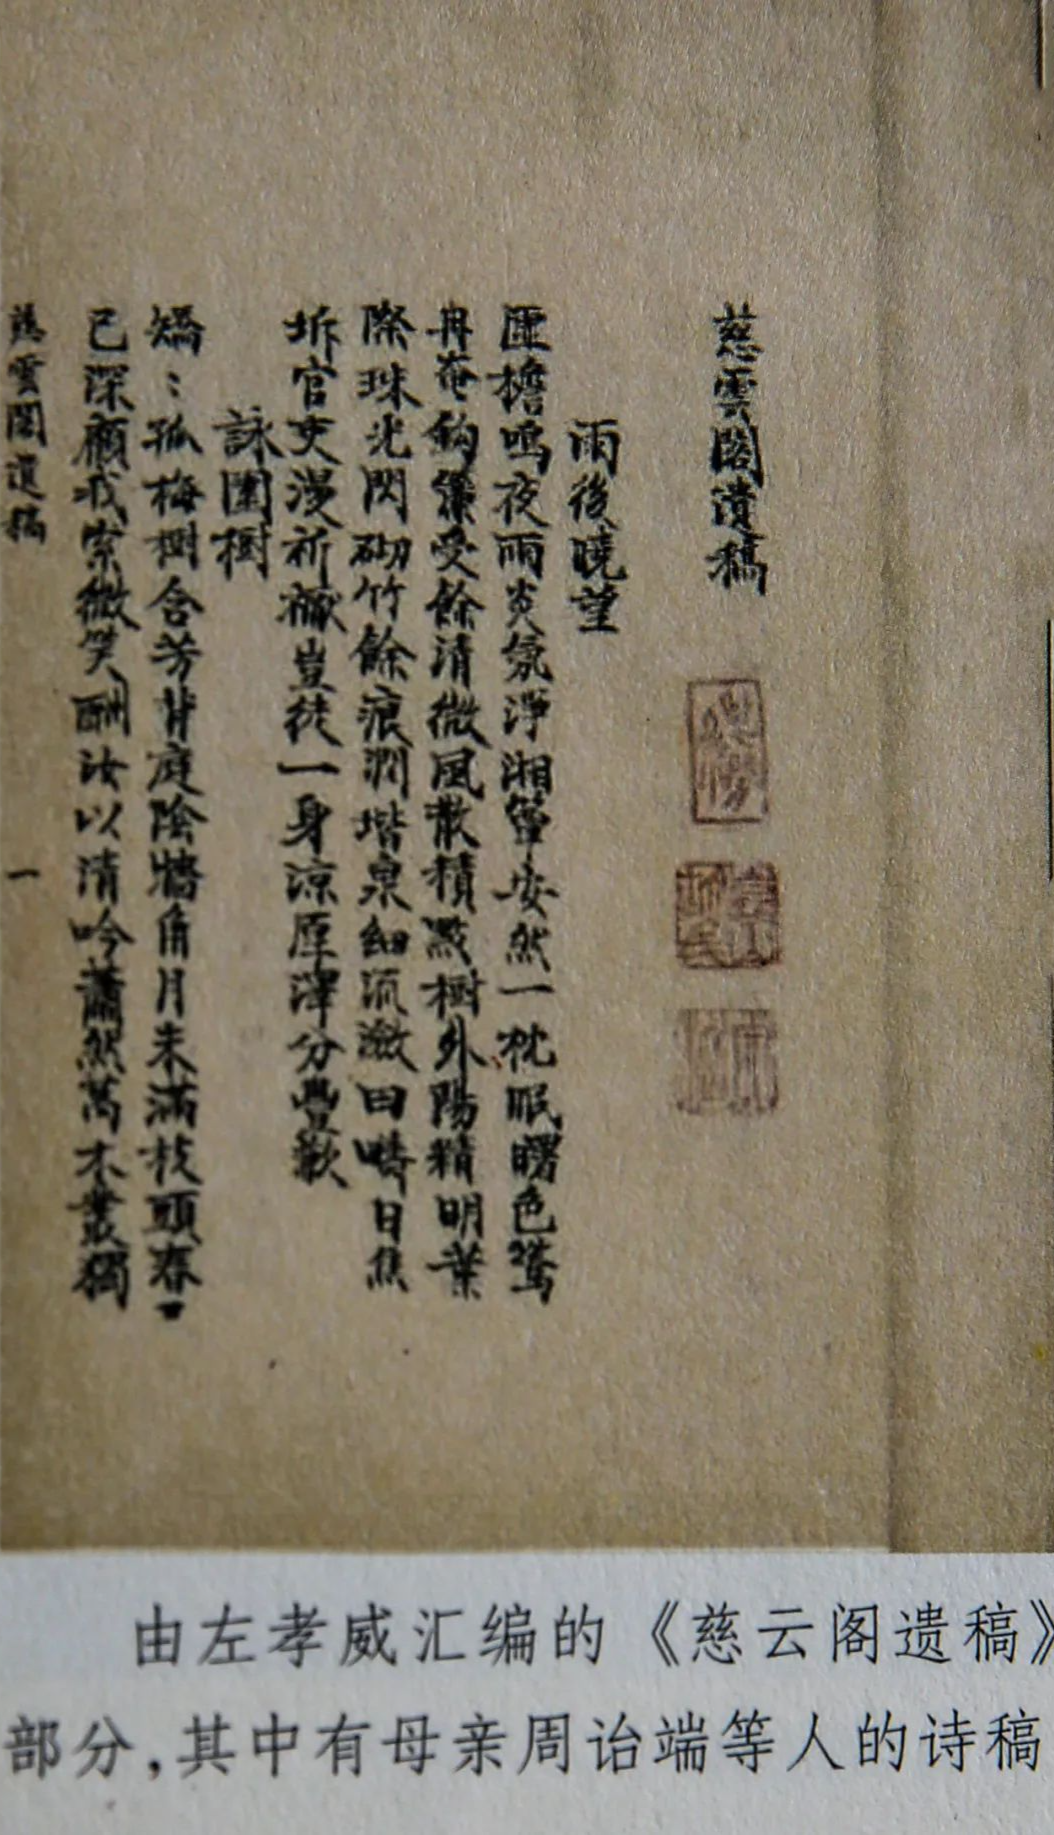 慈雲閣遺稿
雨後曉望
匝檐鳴夜雨炎氛淨湘簟安然一枕眠曙色鶯
冉奄鈎簾受餘清微風散積點樹外陽精明葉
際珠光閃砌竹餘痕潤堦泉細流激田疇日焦
坼官吏漫祈禳豈徒一身涼厚澤分豐歉
詠園樹
嬌〻孤梅樹含芳背庭陰牆角月未滿枝頭春
已深顧我索微笑酬汝以清吟蕭然萬木叢獨
慈雲閣遺稿 一
由左孝威汇编的《慈云阁遗稿》
部分,其中有母亲周诒端等人的诗稿